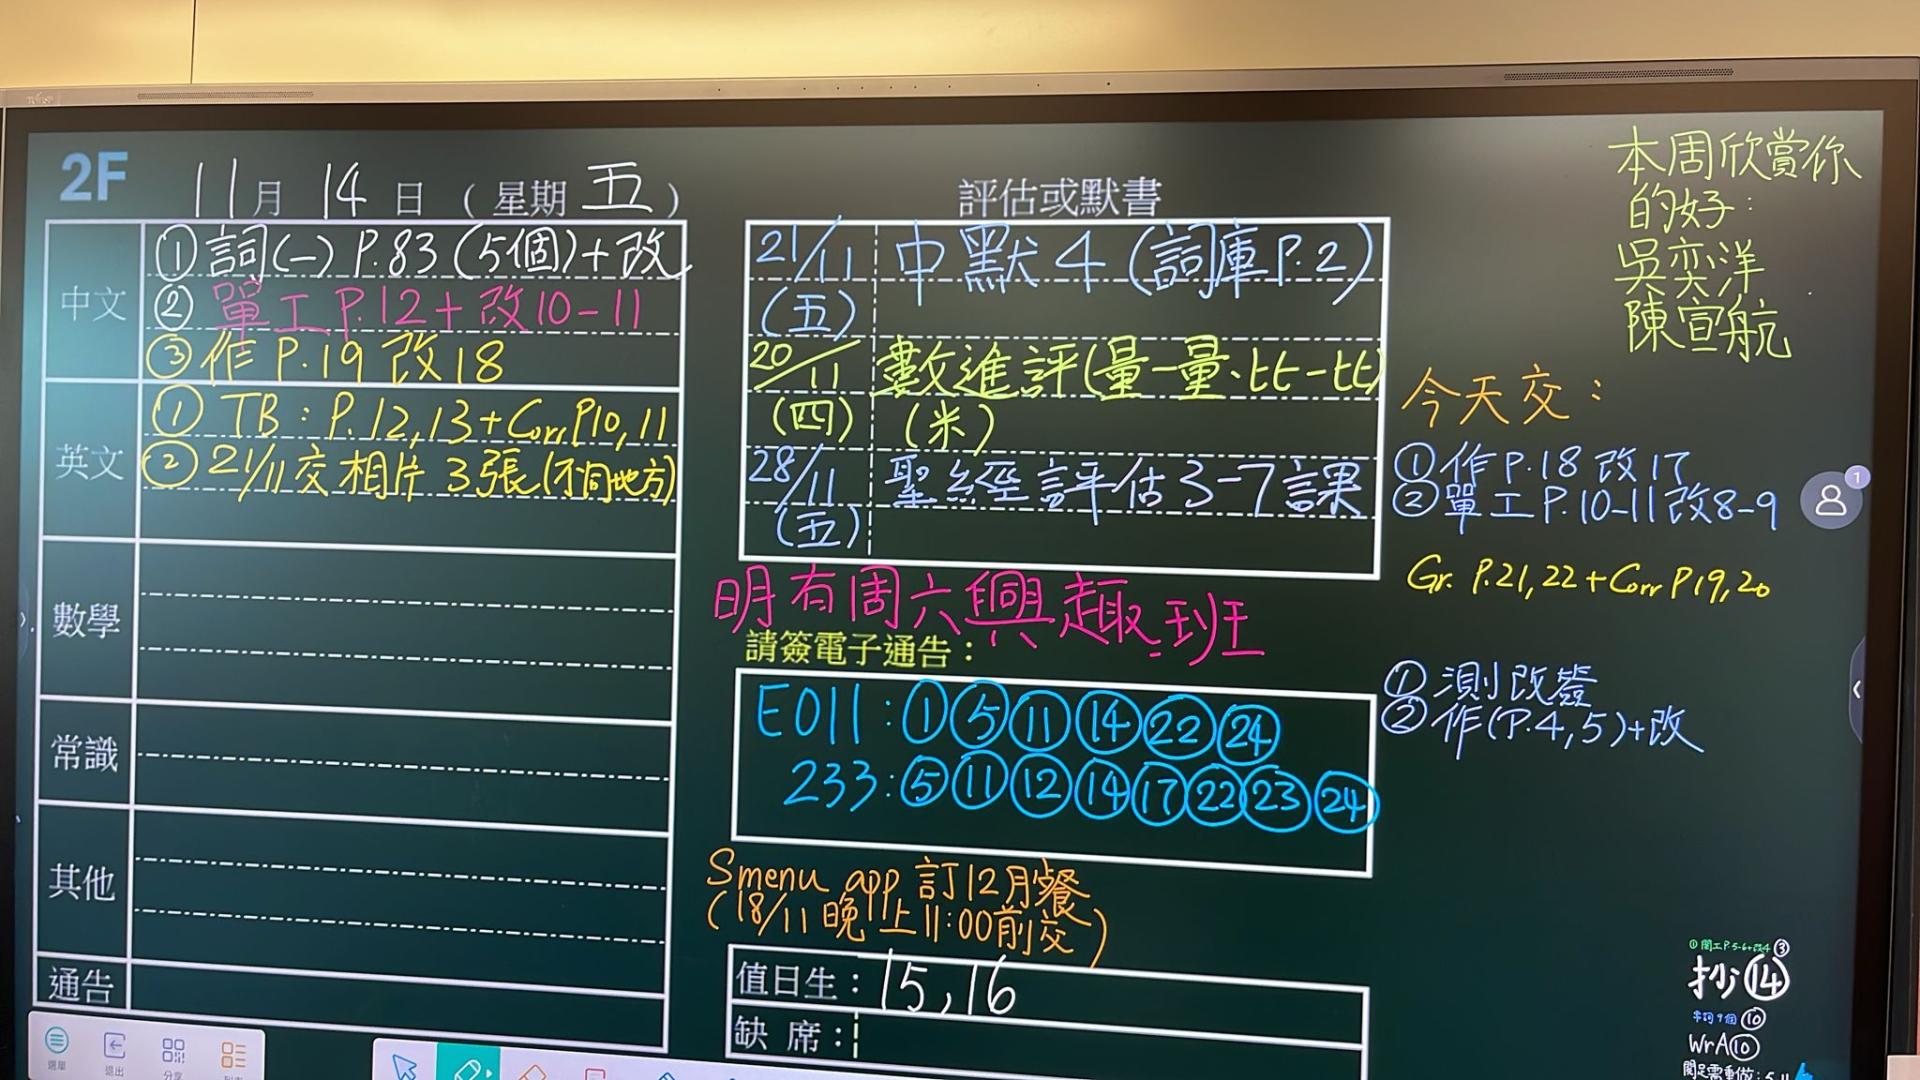 2F
11月 14日 (星期 五)
中文
①詞(一) P.83 (5個)+改
② 單工 P.12+改10-11
③作 P.19 改18
英文
① TB: P.12,13+Corr P10,11
② 21/11交相片 3張(不同地方)
數學
常識
其他
通告
評估或默書
21/11 中默4 (詞庫P.2)
(五)
20/11 數進評(量一量、比一比)
(四) (米)
28/11 聖經評估3-7課
(五)
明有周六興趣班
請簽電子通告:
E011:①⑤⑪⑭㉒㉔
233:⑤⑪⑫⑭⑰㉒㉓㉔
Smenu app 訂12月餐
(18/11晚上11:00前交)
值日生: 15,16
缺席:
本周欣賞你
的好:
吳奕洋
陳宣航
今天交:
①作P.18 改17
②單工P.10-11改8-9
Gr. P.21,22+Corr P19,20
①測改簽
②作(P.4,5)+改
1
抄⑭
⑩
WrA⑩
選單
退出
分享